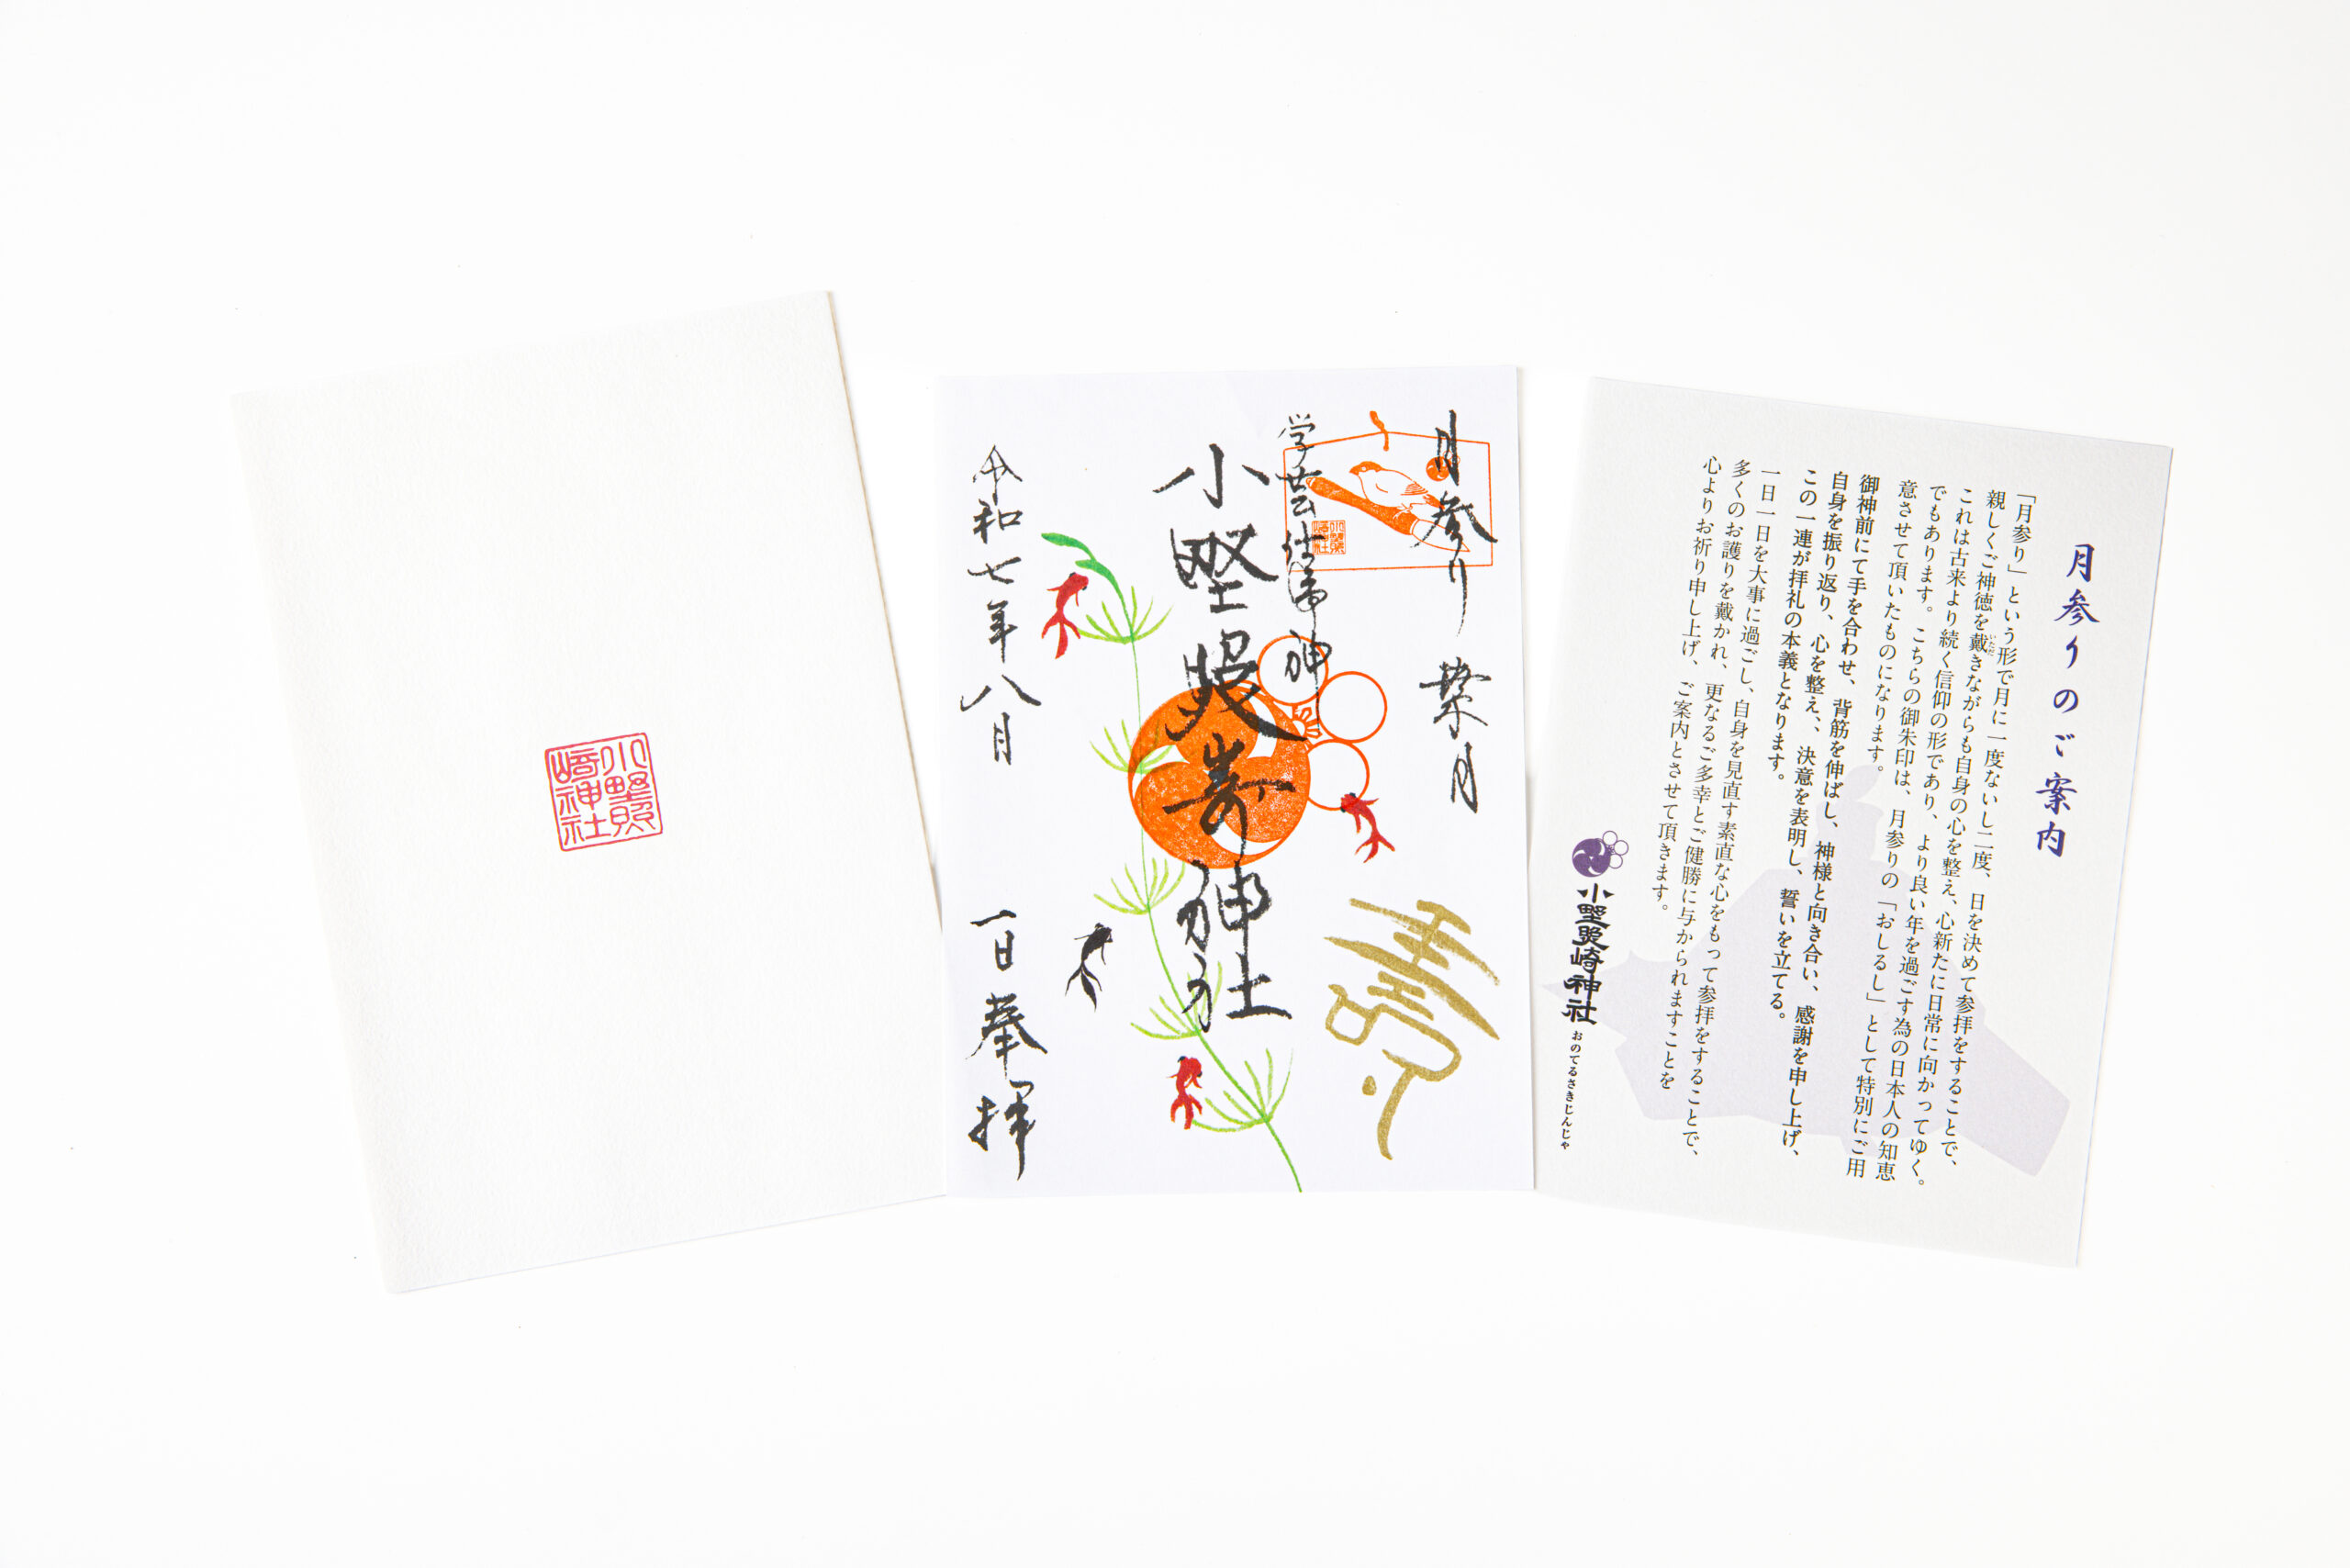 小野照崎神社
月参り 葉月
学芸仕事神
小野照崎神社
令和七年八月 一日 奉拝
月参りのご案内
「月参り」という形で月に一度ないし二度、日を決めて参拝をすることで、
親しくご神徳を戴きながらも自身の心を整え、心新たに日常に向かってゆく。
これは古来より続く信仰の形であり、より良い年を過ごす為の日本人の知恵
でもあります。こちらの御朱印は、月参りの「おしるし」として特別にご用
意させて頂いたものになります。
御神前にて手を合わせ、背筋を伸ばし、神様と向き合い、感謝を申し上げ、
自身を振り返り、心を整え、、決意を表明し、誓いを立てる。
この一連が拝礼の本義となります。
一日一日を大事に過ごし、自身を見直す素直な心をもって参拝をすることで、
多くのお護りを戴かれ、更なるご多幸とご健勝に与かられますことを
心よりお祈り申し上げ、ご案内とさせて頂きます。
小野照崎神社 おのてるさきじんじゃ